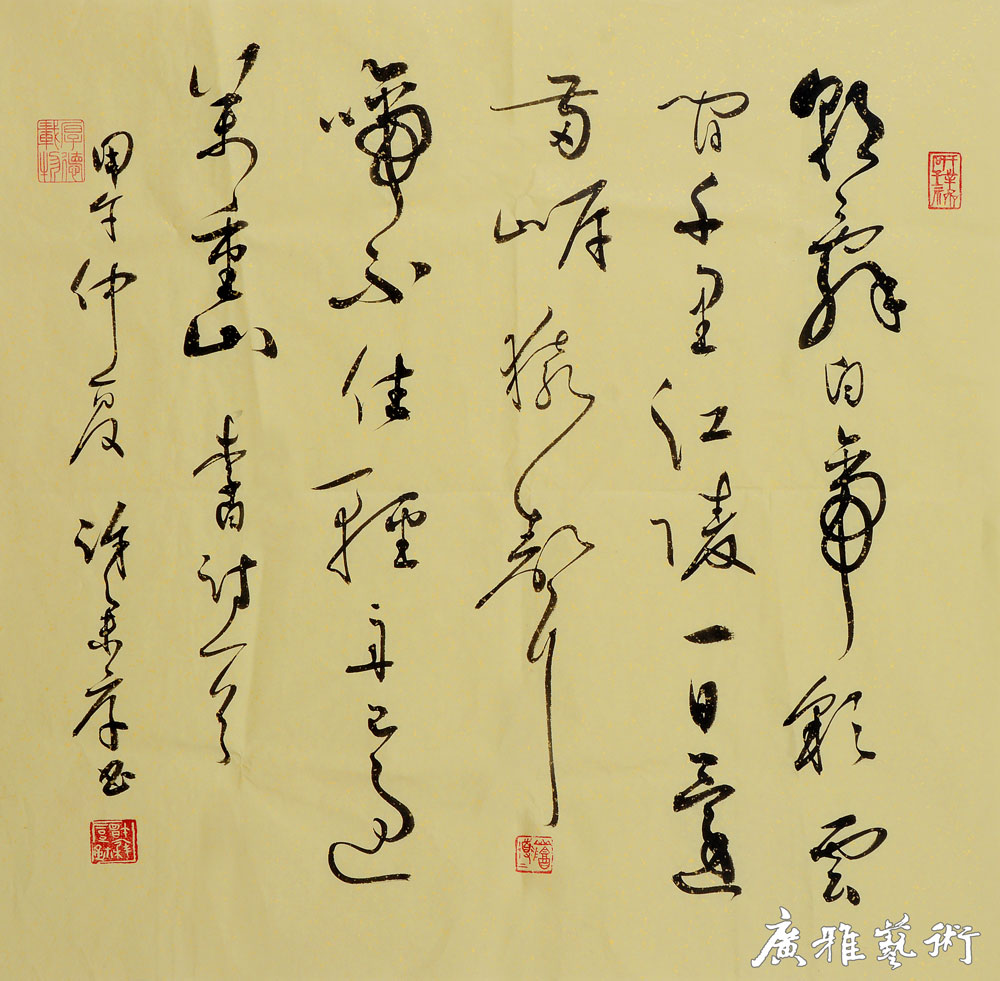 朝辭白帝彩雲
間千里江陵一日還
兩岸猿聲
啼不住輕舟已過
萬重山 李白詩一首
甲午仲夏 許 書
厚德載物
廣雅藝術